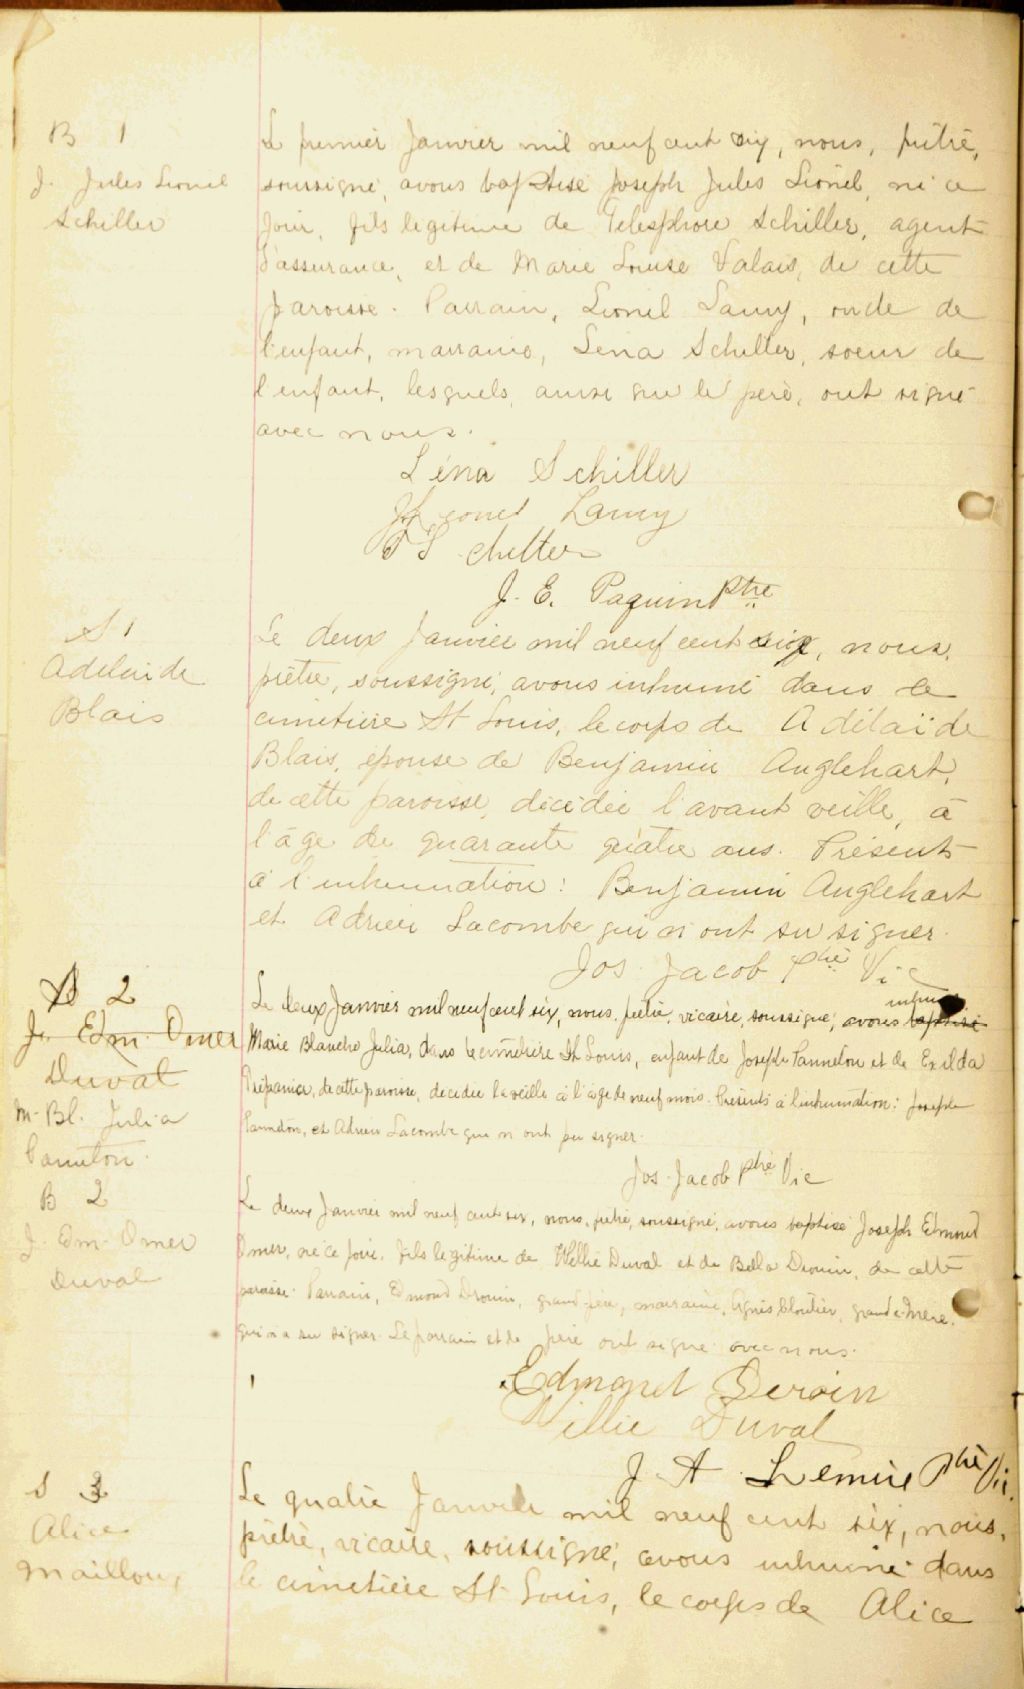 B 1
J. Jules Lionel
Schiller
Le premier Janvier mil neuf cent six, nous, prêtre,
soussigné, avons baptisé Joseph Jules Lionel, né ce
jour, fils légitime de Télesphore Schiller, agent
d'assurance, et de Marie Louise Valais, de cette
paroisse. Parrain, Lionel Lamy, oncle de
l'enfant, marraine, Léna Schiller, soeur de
l'enfant, lesquels, ainsi que le père, ont signé
avec nous.
Léna Schiller
Lionel Lamy
T S chiller
J. E. Paquin Ptre
S 1
Adelaide
Blais
Le deux Janvier mil neuf cent six, nous,
prêtre, soussigné, avons inhumé dans le
cimetière St Louis, le corps de Adélaïde
Blais, épouse de Benjamin Anglehart,
de cette paroisse, décédée l'avant veille, à
l'âge de quarante quatre ans. Présents
à l'inhumation: Benjamin Anglehart
et Adrien Lacombe qui n'ont su signer.
Jos. Jacob Ptre Vic
2
J. Edm. Omer
Duval
M. Bl. Julia
Panneton.
Le deux Janvier mil neuf cent six, nous, prêtre, vicaire, soussigné, avons baptisé inhumé
Marie Blanche Julia, dans le cimetière St Louis, enfant de Joseph Panneton et de Exilda
Trépanier, de cette paroisse, décédée la veille à l'âge de neuf mois. Présents à l'inhumation: Joseph
Panneton, et Adrien Lacombe qui n'ont pu signer.
Jos. Jacob Ptre Vic
B 2
J. Edm. Omer
Duval
Le deux Janvier mil neuf cent six, nous, prêtre, soussigné, avons baptisé Joseph Edmond
Omer, né ce jour, fils légitime de Willie Duval et de Bella Drouin, de cette
paroisse. Parrain, Edmond Drouin, grand-père, marraine, Agnès Cloutier, grand-mère,
qui n'a su signer. Le parrain et le père ont signé avec nous.
Edmond Deroin
Willie Duval
J. A. Lemire Ptre Vic.
S 3
Alice
Mailloux
Le quatre Janvier mil neuf cent six, nous,
prêtre, vicaire, soussigné, avons inhumé dans
le cimetière St Louis, le corps de Alice